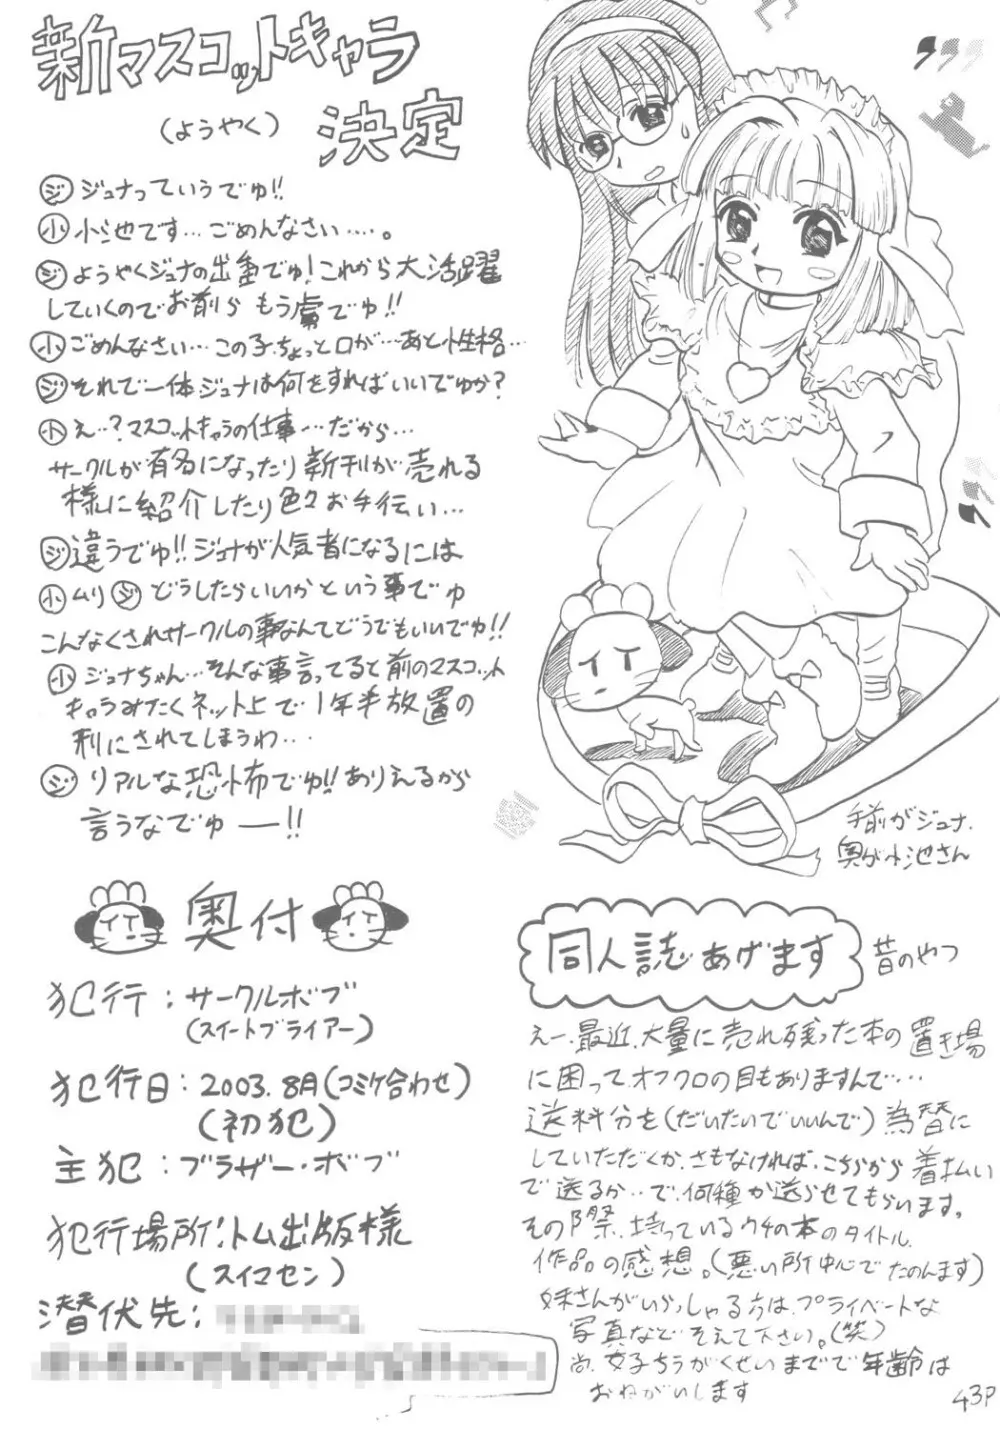 新マスコットキャラ
(ようやく) 決定
ジ ジュナっていうでゅ!!
小 小池です…ごめんなさい….。
ジ ようやくジュナの出番でゅ!これから大活躍
していくのでお前ら もう虜でゅ!!
小 ごめんなさい…この子、ちょっと口が…あと性格…
ジ それで一体ジュナは何をすればいいでゅか?
小 え…?マスコットキャラの仕事…だから…
サークルが有名になったり新刊が売れる
様に紹介したり色々お手伝い…
ジ 違うでゅ!!ジュナが人気者になるには
小 ムリ ジ どうしたらいいかという事でゅ
こんなくされサークルの事なんてどうでもいいでゅ!!
小 ジュナちゃん…そんな事言ってると前のマスコット
キャラみたくネット上で1年半放置の
刑にされてしまうわ…
ジ リアルな恐怖でゅ!!ありえるから
言うなでゅ―!!
手前がジュナ、
奥が小池さん
奥付
犯行:サークルボブ
(スイートブライアー)
犯行日:2003.8月(コミケ合わせ)
(初犯)
主犯:ブラザー・ボブ
犯行場所:トム出版様
(スイマセン)
潜伏先:
同人誌あげます 昔のやつ
えー、最近、大量に売れ残った本の置き場
に困って、オフクロの目もありますんで…
送料分を(だいたいでいいんで)為替に
していただくか、さもなければ、こちらから着払い
で送るか…で、何種か送らせてもらいます。
その際、持っているウチの本のタイトル、
作品の感想。(悪い所中心でたのんます)
妹さんがいらっしゃる方は、プライベートな
写真などそえて下さい。(笑)
尚、女子ちうがくせいまでで年齢は
おねがいします
43P